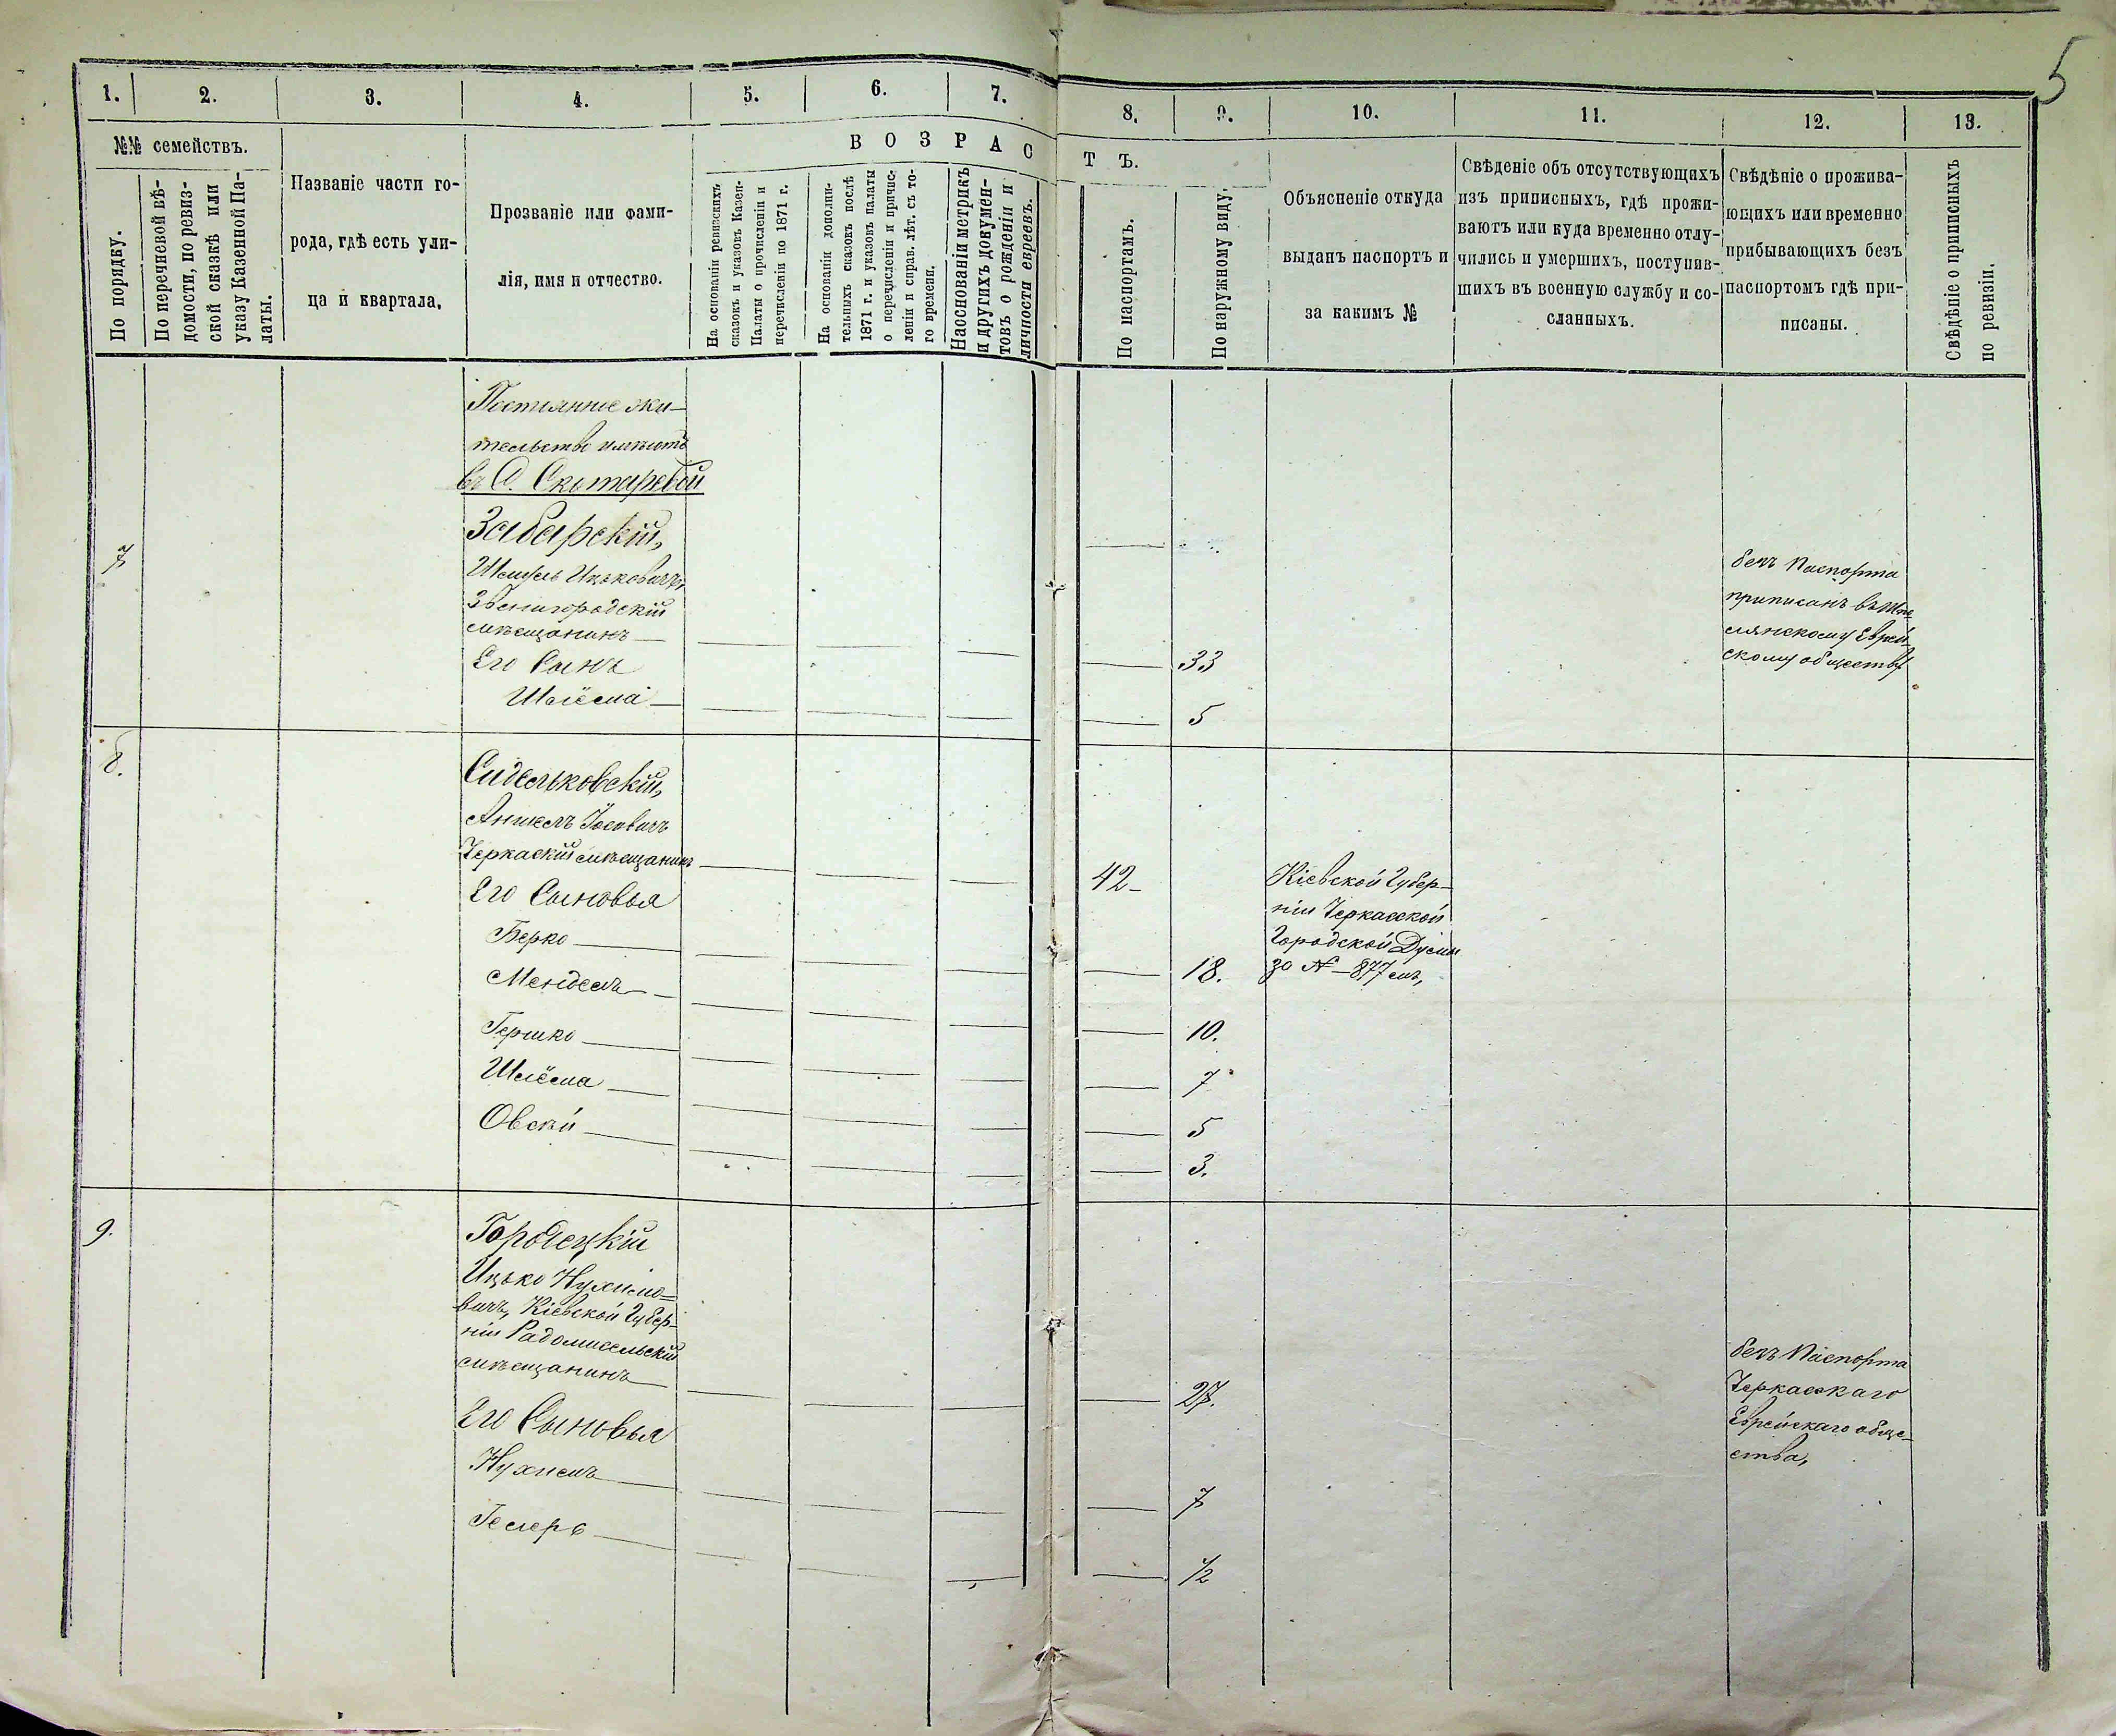 5
1.
2.
3.
4.
5.
6.
7.
8.
9.
10.
11.
12.
13.
№№ семействъ.
По порядку.
По перечневой вѣ-
домости, по ревиз-
ской сказкѣ или
указу Казенной Па-
латы.
Названіе части го-
рода, гдѣ есть ули-
ца и квартала,
Прозваніе или фами-
лія, имя и отчество.
ВОЗРАС
ТЪ.
На основаніи ревизскихъ
сказокъ и указовъ Казен-
Палаты о прочисленіи и
перечисленіи по 1871 г.
На основаніи дополни-
тельныхъ сказокъ послѣ
1871 г. и указовъ палаты
о перечисленіи и причис-
леніи и справ. лѣт. съ то-
го времени.
На основаніи метрикъ
и другихъ докумен-
товъ о рожденіи и
личности евреевъ.
По паспортамъ.
По наружному виду.
Объясненіе откуда
выданъ паспортъ и
за какимъ №
Свѣденіе объ отсутствующихъ
изъ приписныхъ, гдѣ прожи-
ваютъ или куда временно отлу-
чились и умершихъ, поступив-
шихъ въ военную службу и со-
сланныхъ.
Свѣдѣніе о прожива-
ющихъ или временно
прибывающихъ безъ
паспортомъ гдѣ при-
писаны.
Свѣдѣніе о приписныхъ
по ревизіи.
Постоянное жи-
тельство имѣютъ
въ С. Скотаревой
7
Забарскій,
Шмуль Ицьковичъ,
Звенигородскій
мѣщанинъ — 33
Его Сынъ
Шлёма — 5
безъ Паспорта
приписанъ въ
скому обществу
8.
Сидельковскій,
Аншель Іосевичъ
Черкаскій мѣщанинъ — 42
Его Сыновья
Берко — 18.
Мендель — 10.
Гершко — 7
Шлёма — 5
Овсѣй — 3.
Кіевской Губер-
ніи Черкасской
Городской Думы
за № — 877 мъ,
9.
Городецкій
Ицько Нухимо=
вичъ, Кіевской Губер-
ніи Радомисельскій
мѣщанинъ — 27.
Его Сыновья
Нухимъ — 7
— 1/2
безъ Паспорта
Черкасскаго
Еврейскаго обще-
ства,